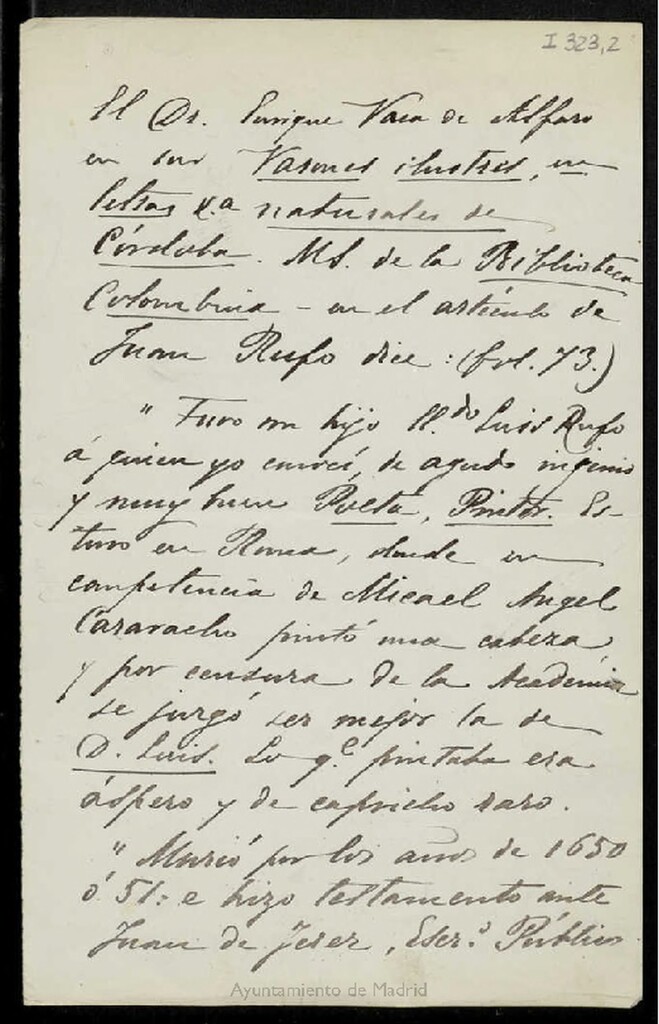 I 323,2
El Dr. Enrique Vaca de Alfaro
en sus Varones ilustres, en
letras &.a naturales de
Córdoba. MS. de la Biblioteca
Colombina – en el artículo de
Juan Rufo dice: (fol. 73.)
" Tuvo un hijo ll.do Luis Rufo
á quien yo conocí, de agudo ingenio
y muy buen Poeta, Pintor. Es-
tuvo en Roma, donde en
competencia de Micael Angel
Caravacho pintó una cabeza
y por censura de la Academia
se juzgó ser mejor la de
D. Luis. Lo q.e pintaba era
áspero y de capricho raro.
" Murió por los años de 1650
ó 51: e hizo testamento ante
Juan de Jerez, Escr.o Público
Ayuntamiento de Madrid